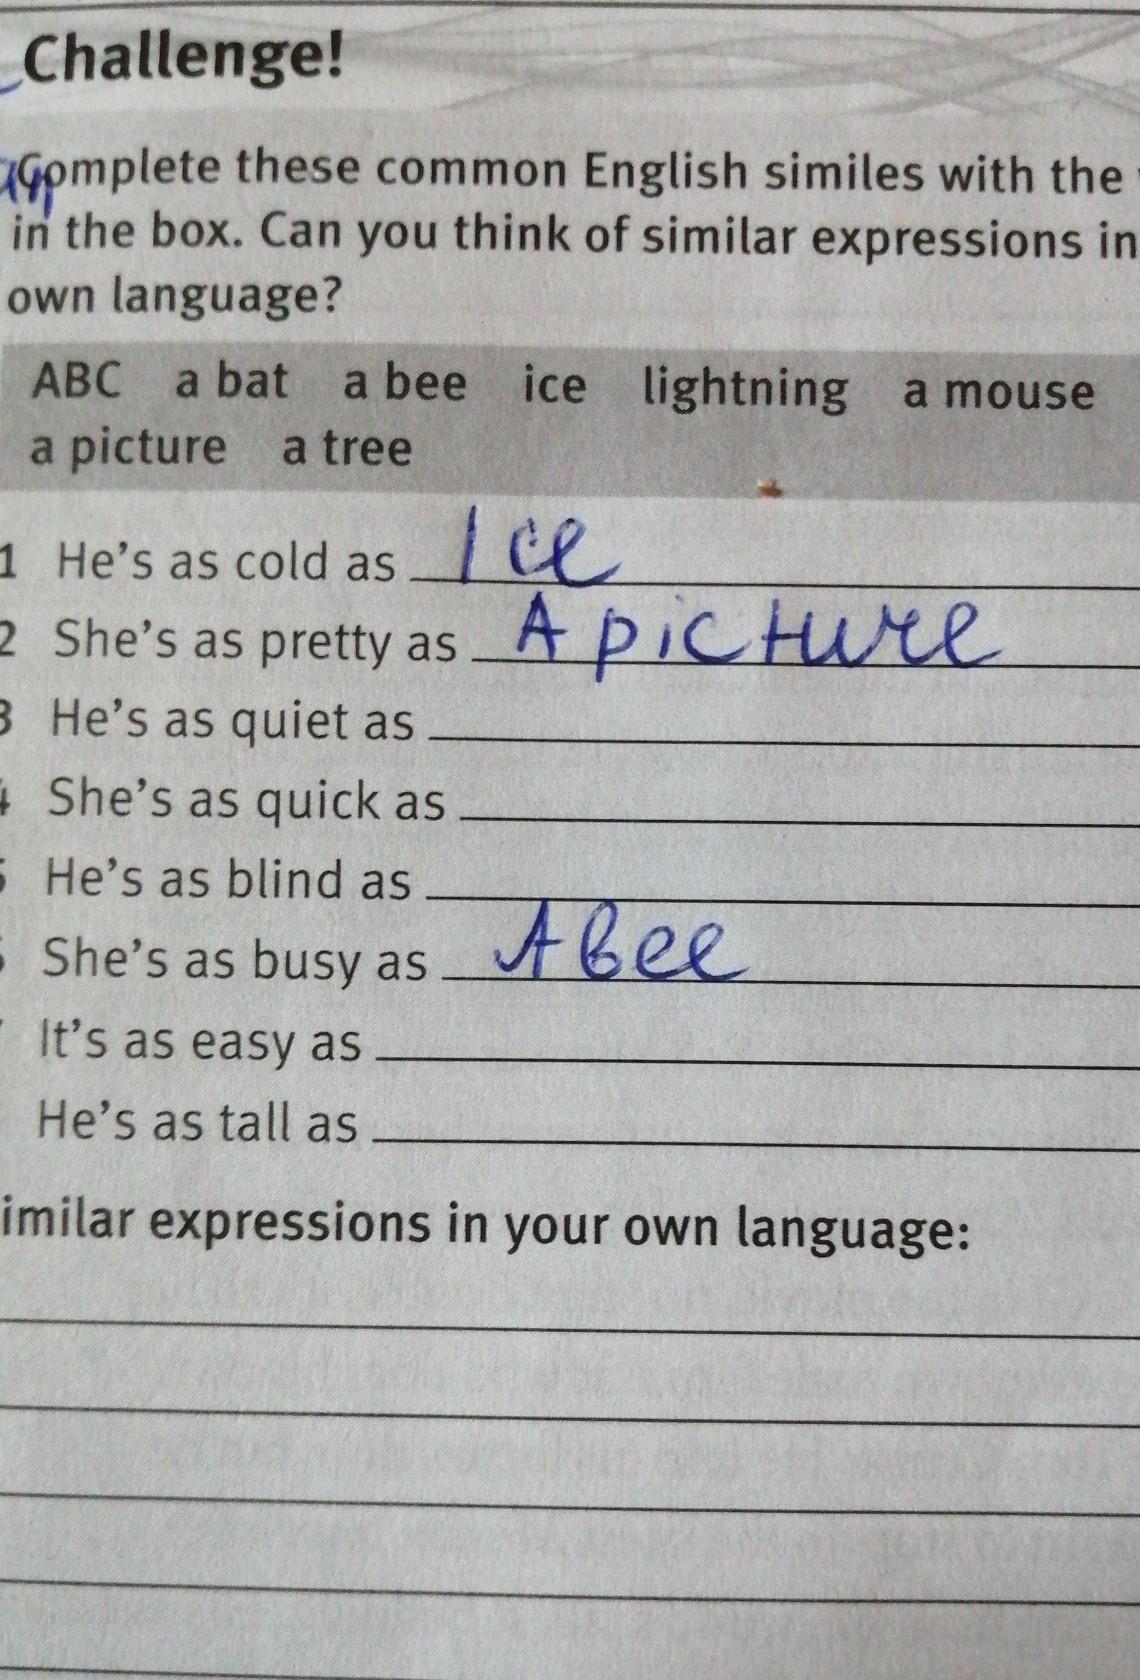 Challenge!
Complete these common English similes with the
in the box. Can you think of similar expressions in
own language?
ABC a bat a bee ice lightning a mouse
a picture a tree
1 He's as cold as Ice
2 She's as pretty as A picture
3 He's as quiet as
4 She's as quick as
5 He's as blind as
6 She's as busy as A bee
It's as easy as
He's as tall as
imilar expressions in your own language: